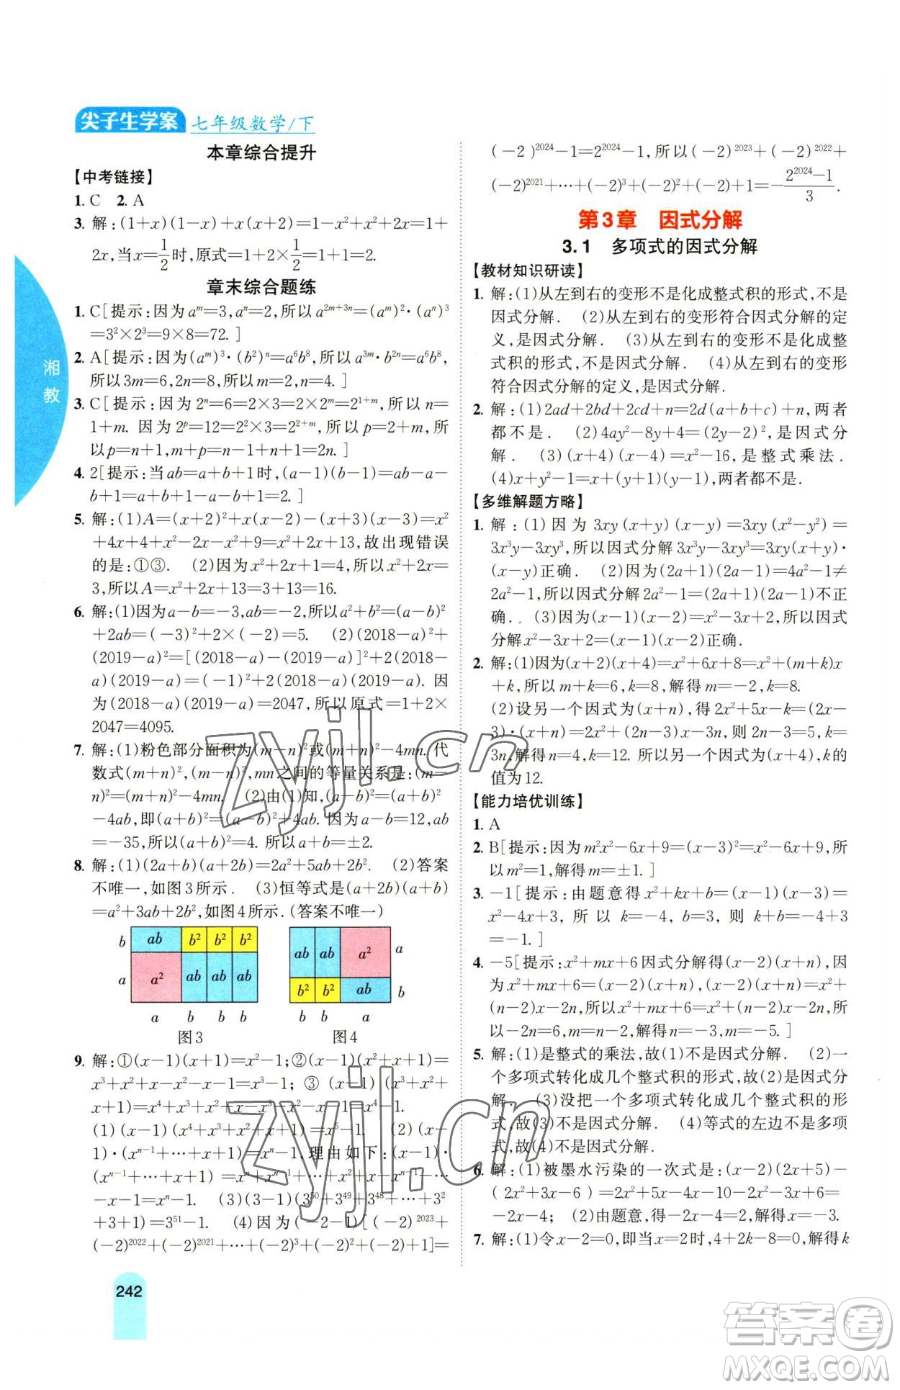 尖子生学案 七年级数学/下
本章综合提升
【中考链接】
1. C 2. A
3. 解:(1+x)(1-x)+x(x+2)=1-x²+x²+2x=1+
2x,当x=1/2时,原式=1+2×1/2=1+1=2.
章末综合题练
1. C[提示:因为aᵐ=3,aⁿ=2,所以a²ᵐ⁺³ⁿ=(aᵐ)²·(aⁿ)³=
3²×2³=9×8=72.]
2. A[提示:因为(aᵐ)³·(b²)ⁿ=a⁶b⁸,所以a³ᵐ·b²ⁿ=a⁶b⁸,
所以3m=6,2n=8,所以m=2,n=4.]
3. C[提示:因为2ⁿ=6=2×3=2×2ᵐ=2¹⁺ᵐ,所以n=
1+m.因为2ᵖ=12=2²×3=2²×2ᵐ=2²⁺ᵐ,所以p=2+
m,所以p=n+1,m+p=n+1+n-1=2n.]
4. 2[提示:当ab=a+b+1时,(a-1)(b-1)=ab-a-
b+1=a+b+1-a-b+1=2.]
5. 解:(1)A=(x+2)²+x(1-x)-(x+3)(x-3)=x²
+4x+4+x-2x²-x²+9=... 
的是:①③. (2)因为x²+2x+1=4,所以x²+2x=
3,所以A=x²+2x+13=3+13=16.
6. 解:(1)因为a-b=-3,ab=-2,所以a²+b²=(a-b)²
+2ab=(-3)²+2×(-2)=5. (2)(2018-a)²+
(2019-a)²=[(2018-a)-(2019-a)]²+2(2018-
a)(2019-a)=(-1)²+2(2018-a)(2019-a). 因
为(2018-a)(2019-a)=2047,所以原式=1+2×
2047=4095.
7. 解:(1)粉色部分面积为(m-n)²或(m+n)²-4mn. 代
数式(m+n)²,(m-n)²,mn之间的等量关系是:(m-
n)²=(m+n)²-4mn. (2)由(1)知,(a-b)²=(a+b)²
-4ab,即(a+b)²=(a-b)²+4ab. 因为a-b=12,ab
=-35,所以(a+b)²=4,所以a+b=±2.
8. 解:(1)(2a+b)(a+2b)=2a²+5ab+2b². (2)答案
不唯一,如图3所示. (3)恒等式是(a+2b)(a+b)
=a²+3ab+2b²,如图4所示.(答案不唯一)
b ab b² b² ab ab a² a
a a² ab ab b² b² ab b
a b b b b a
图3 图4
9. 解:①(x-1)(x+1)=x²-1;②(x-1)(x²+x+1)=
x³+x²+x-x²-x-1=x³-1;③(x-1)(x³+x²+
x+1)=x⁴+x³+x²+x-x³-x²-x-1=x⁴-1.
(1)(x-1)(x⁴+x³+x²+x+1)=x⁵-1. (2)(x-
1)·(xⁿ⁻¹+xⁿ⁻²+…+x+1)=xⁿ-1. 理由如下:(x-
1)·(xⁿ⁻¹+xⁿ⁻²+…+x+1)=xⁿ+xⁿ⁻¹+…+x²+x-xⁿ⁻¹-…
-x-1=xⁿ-1. (3)(3-1)(3⁵⁰+3⁴⁹+3⁴⁸+…+3²
+3+1)=3⁵¹-1. (4)因为(-2-1)[(-2)²⁰²³+
(-2)²⁰²²+(-2)²⁰²¹+…+(-2)³+(-2)²+(-2)+1]=
(-2)²⁰²⁴-1=2²⁰²⁴-1,所以(-2)²⁰²³+(-2)²⁰²²+
(-2)²⁰²¹+…+(-2)³+(-2)²+(-2)+1=-(2²⁰²⁴-1)/3.
第3章 因式分解
3.1 多项式的因式分解
【教材知识研读】
1. 解:(1)从左到右的变形不是化成整式积的形式,不是因
式分解. (2)从左到右的变形符合因式分解的定义,是
因式分解. (3)从左到右的变形不是化成整
式积的形式,不是因式分解. (4)从左到右的变形
符合因式分解的定义,是因式分解.
2. 解:(1)2ad+2bd+2cd+n=2d(a+b+c)+n,两者
都不是. (2)4ay²-8y+4=(2y-2)²,是因式分
解. (3)(x+4)(x-4)=x²-16,是整式乘法.
(4)x+y=x+y-1,两者都不是.
【多维解题方略】
1. 解:(1)因为3xy(x+y)(x-y)=3xy(x²-y²)=
3x³y-3xy³,所以因式分解3x³y-3xy³=3xy(x+y)
(x-y)正确. (2)因为(2a+1)(2a-1)=4a²-1≠
2a²-1,所以因式分解2a²-1=(2a+1)(2a-1)不正
确. (3)因为(x-1)(x-2)=x²-3x+2,所以因式
分解x²-3x+2=(x-1)(x-2)正确.
2. 解:(1)因为(x+2)(x+4)=x²+6x+8=x²+(m+k)x
+k,所以m+k=6,k=8,解得m=-2,k=8.
(2)设另一个因式为(x+n),得2x²+5x-k=(2x-
3)·(x+n)=2x²+(2n-3)x-3n,则2n-3=5,k=
3n,解得n=4,k=12. 所以另一个因式为(x+4),k的
值为12.
【能力培优训练】
1. A
2. B[提示:因为m²x²-6x+9=(x-3)²=x²-6x+9,所
以m²=1,解得m=±1.]
3. -1[提示:由题意得x²+kx+b=(x-1)(x-3)=
x²-4x+3,所以k=-4,b=3,则k+b=-4+3
=-1.]
4. -5[提示:x²+mx+6因式分解得(x-2)(x+n),因
为x²+mx+6=(x-2)(x+n),(x-2)(x+n)=x²+
(n-2)x-2n,所以x²+mx+6=x²+(n-2)x-2n,
所以-2n=6,n-2=m,解得n=-3,m=-5.]
5. 解:(1)是整式的乘法,故(1)不是因式分解. (2)一
个多项式转化成几个整式积的形式,故(2)是因式分
解. (3)没把一个多项式转化成几个整式积的形
式,故(3)不是因式分解. (4)等号左边不是多项
式,故(4)不是因式分解.
6. 解:(1)被墨水污染的一次式为(x+2)(3x-2)-
(2x+3x²+6x)=3x²-2x+6x-4-2x-3x²-6x
=-2x-4. (2)由题意,得-2x-4=-2(x+2).
7. 解:(1)令x-2=0,即当x=2时,4+2k-8=0,解得k
242
湘教
zyjl.cn
zyjl.cn
答案圈
MXQE.COM